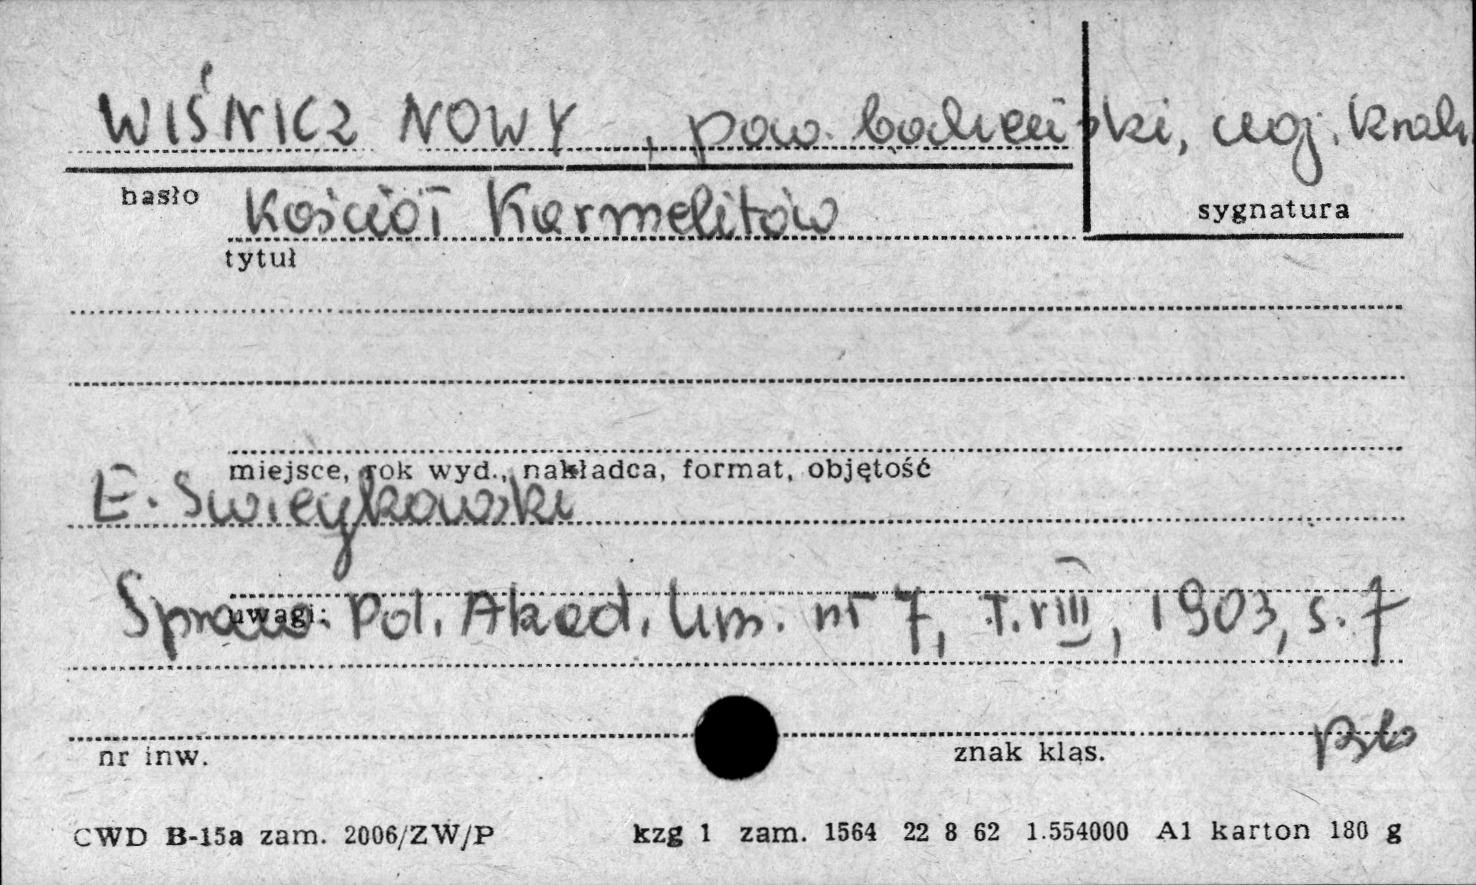 WIŚNICZ NOWY, pow. bocheński, woj. krak.
hasło
Kościół Karmelitów
sygnatura
tytuł
miejsce, rok wyd., nakładca, format, objętość
E. Swieykowski
uwagi:
Spraw. Pol. Akad. Um. nr 7, T. VIII, 1903, s. 7
nr inw.
znak klas.
CWD B-15a zam. 2006/ZW/P kzg 1 zam. 1564 22 8 62 1.554000 A1 karton 180 g